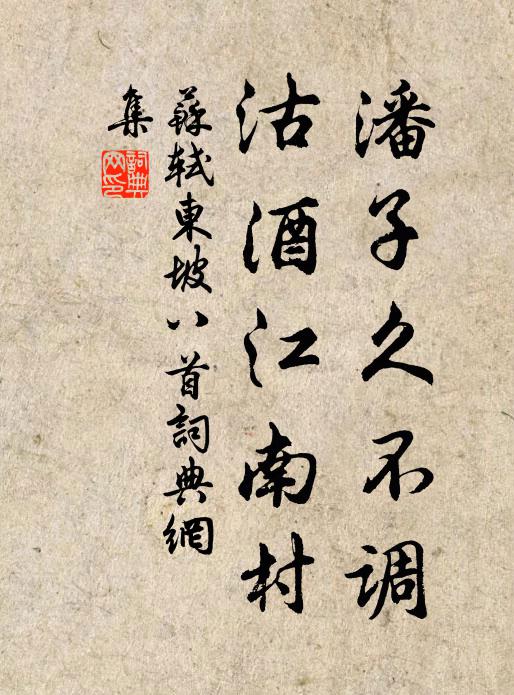 潘子久不调
沽酒江南村
蘇軾東坡八首詞典網
集
詞典网印